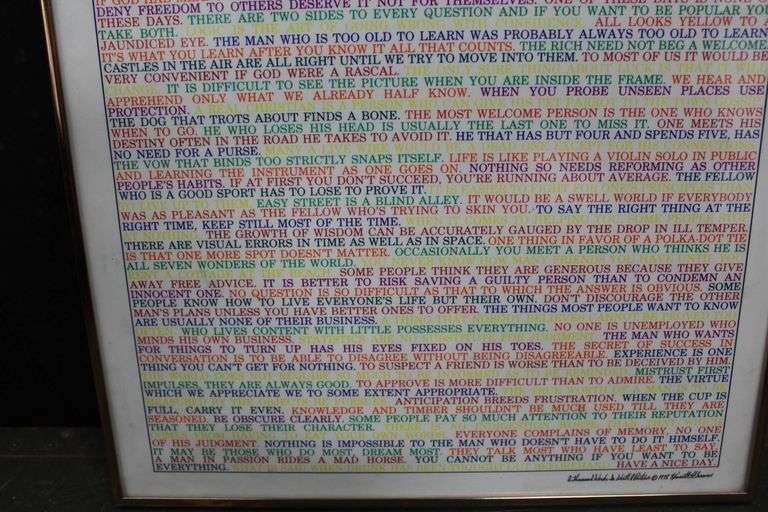 IF GOD HAD
DENY FREEDOM TO OTHERS DESERVE IT NOT FOR THEMSELVES. ONE OF THESE DAYS IS NONE OF
THESE DAYS. THERE ARE TWO SIDES TO EVERY QUESTION AND IF YOU WANT TO BE POPULAR YOU
TAKE BOTH. ALL LOOKS YELLOW TO A
JAUNDICED EYE. THE MAN WHO IS TOO OLD TO LEARN WAS PROBABLY ALWAYS TOO OLD TO LEARN
IT'S WHAT YOU LEARN AFTER YOU KNOW IT ALL THAT COUNTS. THE RICH NEED NOT BEG A WELCOME.
CASTLES IN THE AIR ARE ALL RIGHT UNTIL WE TRY TO MOVE INTO THEM. TO MOST OF US IT WOULD BE
VERY CONVENIENT IF GOD WERE A RASCAL.
IT IS DIFFICULT TO SEE THE PICTURE WHEN YOU ARE INSIDE THE FRAME. WE HEAR AND
APPREHEND ONLY WHAT WE ALREADY HALF KNOW. WHEN YOU PROBE UNSEEN PLACES USE
PROTECTION.
THE DOG THAT TROTS ABOUT FINDS A BONE. THE MOST WELCOME PERSON IS THE ONE WHO KNOWS
WHEN TO GO. HE WHO LOSES HIS HEAD IS USUALLY THE LAST ONE TO MISS IT. ONE MEETS HIS
DESTINY OFTEN IN THE ROAD HE TAKES TO AVOID IT. HE THAT HAS BUT FOUR AND SPENDS FIVE, HAS
NO NEED FOR A PURSE.
THE VOW THAT BINDS TOO STRICTLY SNAPS ITSELF. LIFE IS LIKE PLAYING A VIOLIN SOLO IN PUBLIC
AND LEARNING THE INSTRUMENT AS ONE GOES ON. NOTHING SO NEEDS REFORMING AS OTHER
PEOPLE'S HABITS. IF AT FIRST YOU DON'T SUCCEED, YOU'RE RUNNING ABOUT AVERAGE. THE FELLOW
WHO IS A GOOD SPORT HAS TO LOSE TO PROVE IT.
EASY STREET IS A BLIND ALLEY. IT WOULD BE A SWELL WORLD IF EVERYBODY
WAS AS PLEASANT AS THE FELLOW WHO'S TRYING TO SKIN YOU. TO SAY THE RIGHT THING AT THE
RIGHT TIME, KEEP STILL MOST OF THE TIME.
THE GROWTH OF WISDOM CAN BE ACCURATELY GAUGED BY THE DROP IN ILL TEMPER.
THERE ARE VISUAL ERRORS IN TIME AS WELL AS IN SPACE. ONE THING IN FAVOR OF A POLKA-DOT TIE
IS THAT ONE MORE SPOT DOESN'T MATTER. OCCASIONALLY YOU MEET A PERSON WHO THINKS HE IS
ALL SEVEN WONDERS OF THE WORLD.
SOME PEOPLE THINK THEY ARE GENEROUS BECAUSE THEY GIVE
AWAY FREE ADVICE. IT IS BETTER TO RISK SAVING A GUILTY PERSON THAN TO CONDEMN AN
INNOCENT ONE. NO QUESTION IS SO DIFFICULT AS THAT TO WHICH THE ANSWER IS OBVIOUS. SOME
PEOPLE KNOW HOW TO LIVE EVERYONE'S LIFE BUT THEIR OWN. DON'T DISCOURAGE THE OTHER
MAN'S PLANS UNLESS YOU HAVE BETTER ONES TO OFFER. THE THINGS MOST PEOPLE WANT TO KNOW
ARE USUALLY NONE OF THEIR BUSINESS.
WHO LIVES CONTENT WITH LITTLE POSSESSES EVERYTHING. NO ONE IS UNEMPLOYED WHO
MINDS HIS OWN BUSINESS. THE MAN WHO WANTS
FOR THINGS TO TURN UP HAS HIS EYES FIXED ON HIS TOES. THE SECRET OF SUCCESS IN
CONVERSATION IS TO BE ABLE TO DISAGREE WITHOUT BEING DISAGREEABLE. EXPERIENCE IS ONE
THING YOU CAN'T GET FOR NOTHING. TO SUSPECT A FRIEND IS WORSE THAN TO BE DECEIVED BY HIM.
MISTRUST FIRST
IMPULSES, THEY ARE ALWAYS GOOD. TO APPROVE IS MORE DIFFICULT THAN TO ADMIRE. THE VIRTUE
WHICH WE APPRECIATE WE TO SOME EXTENT APPROPRIATE.
ANTICIPATION BREEDS FRUSTRATION. WHEN THE CUP IS
FULL, CARRY IT EVEN. KNOWLEDGE AND TIMBER SHOULDN'T BE MUCH USED TILL THEY ARE
SEASONED. BE OBSCURE CLEARLY. SOME PEOPLE PAY SO MUCH ATTENTION TO THEIR REPUTATION
THAT THEY LOSE THEIR CHARACTER.
EVERYONE COMPLAINS OF MEMORY, NO ONE
OF HIS JUDGMENT. NOTHING IS IMPOSSIBLE TO THE MAN WHO DOESN'T HAVE TO DO IT HIMSELF.
IT MAY BE THOSE WHO DO MOST, DREAM MOST. THEY TALK MOST WHO HAVE LEAST TO SAY.
A MAN IN PASSION RIDES A MAD HORSE. YOU CANNOT BE ANYTHING IF YOU WANT TO BE
EVERYTHING. HAVE A NICE DAY.